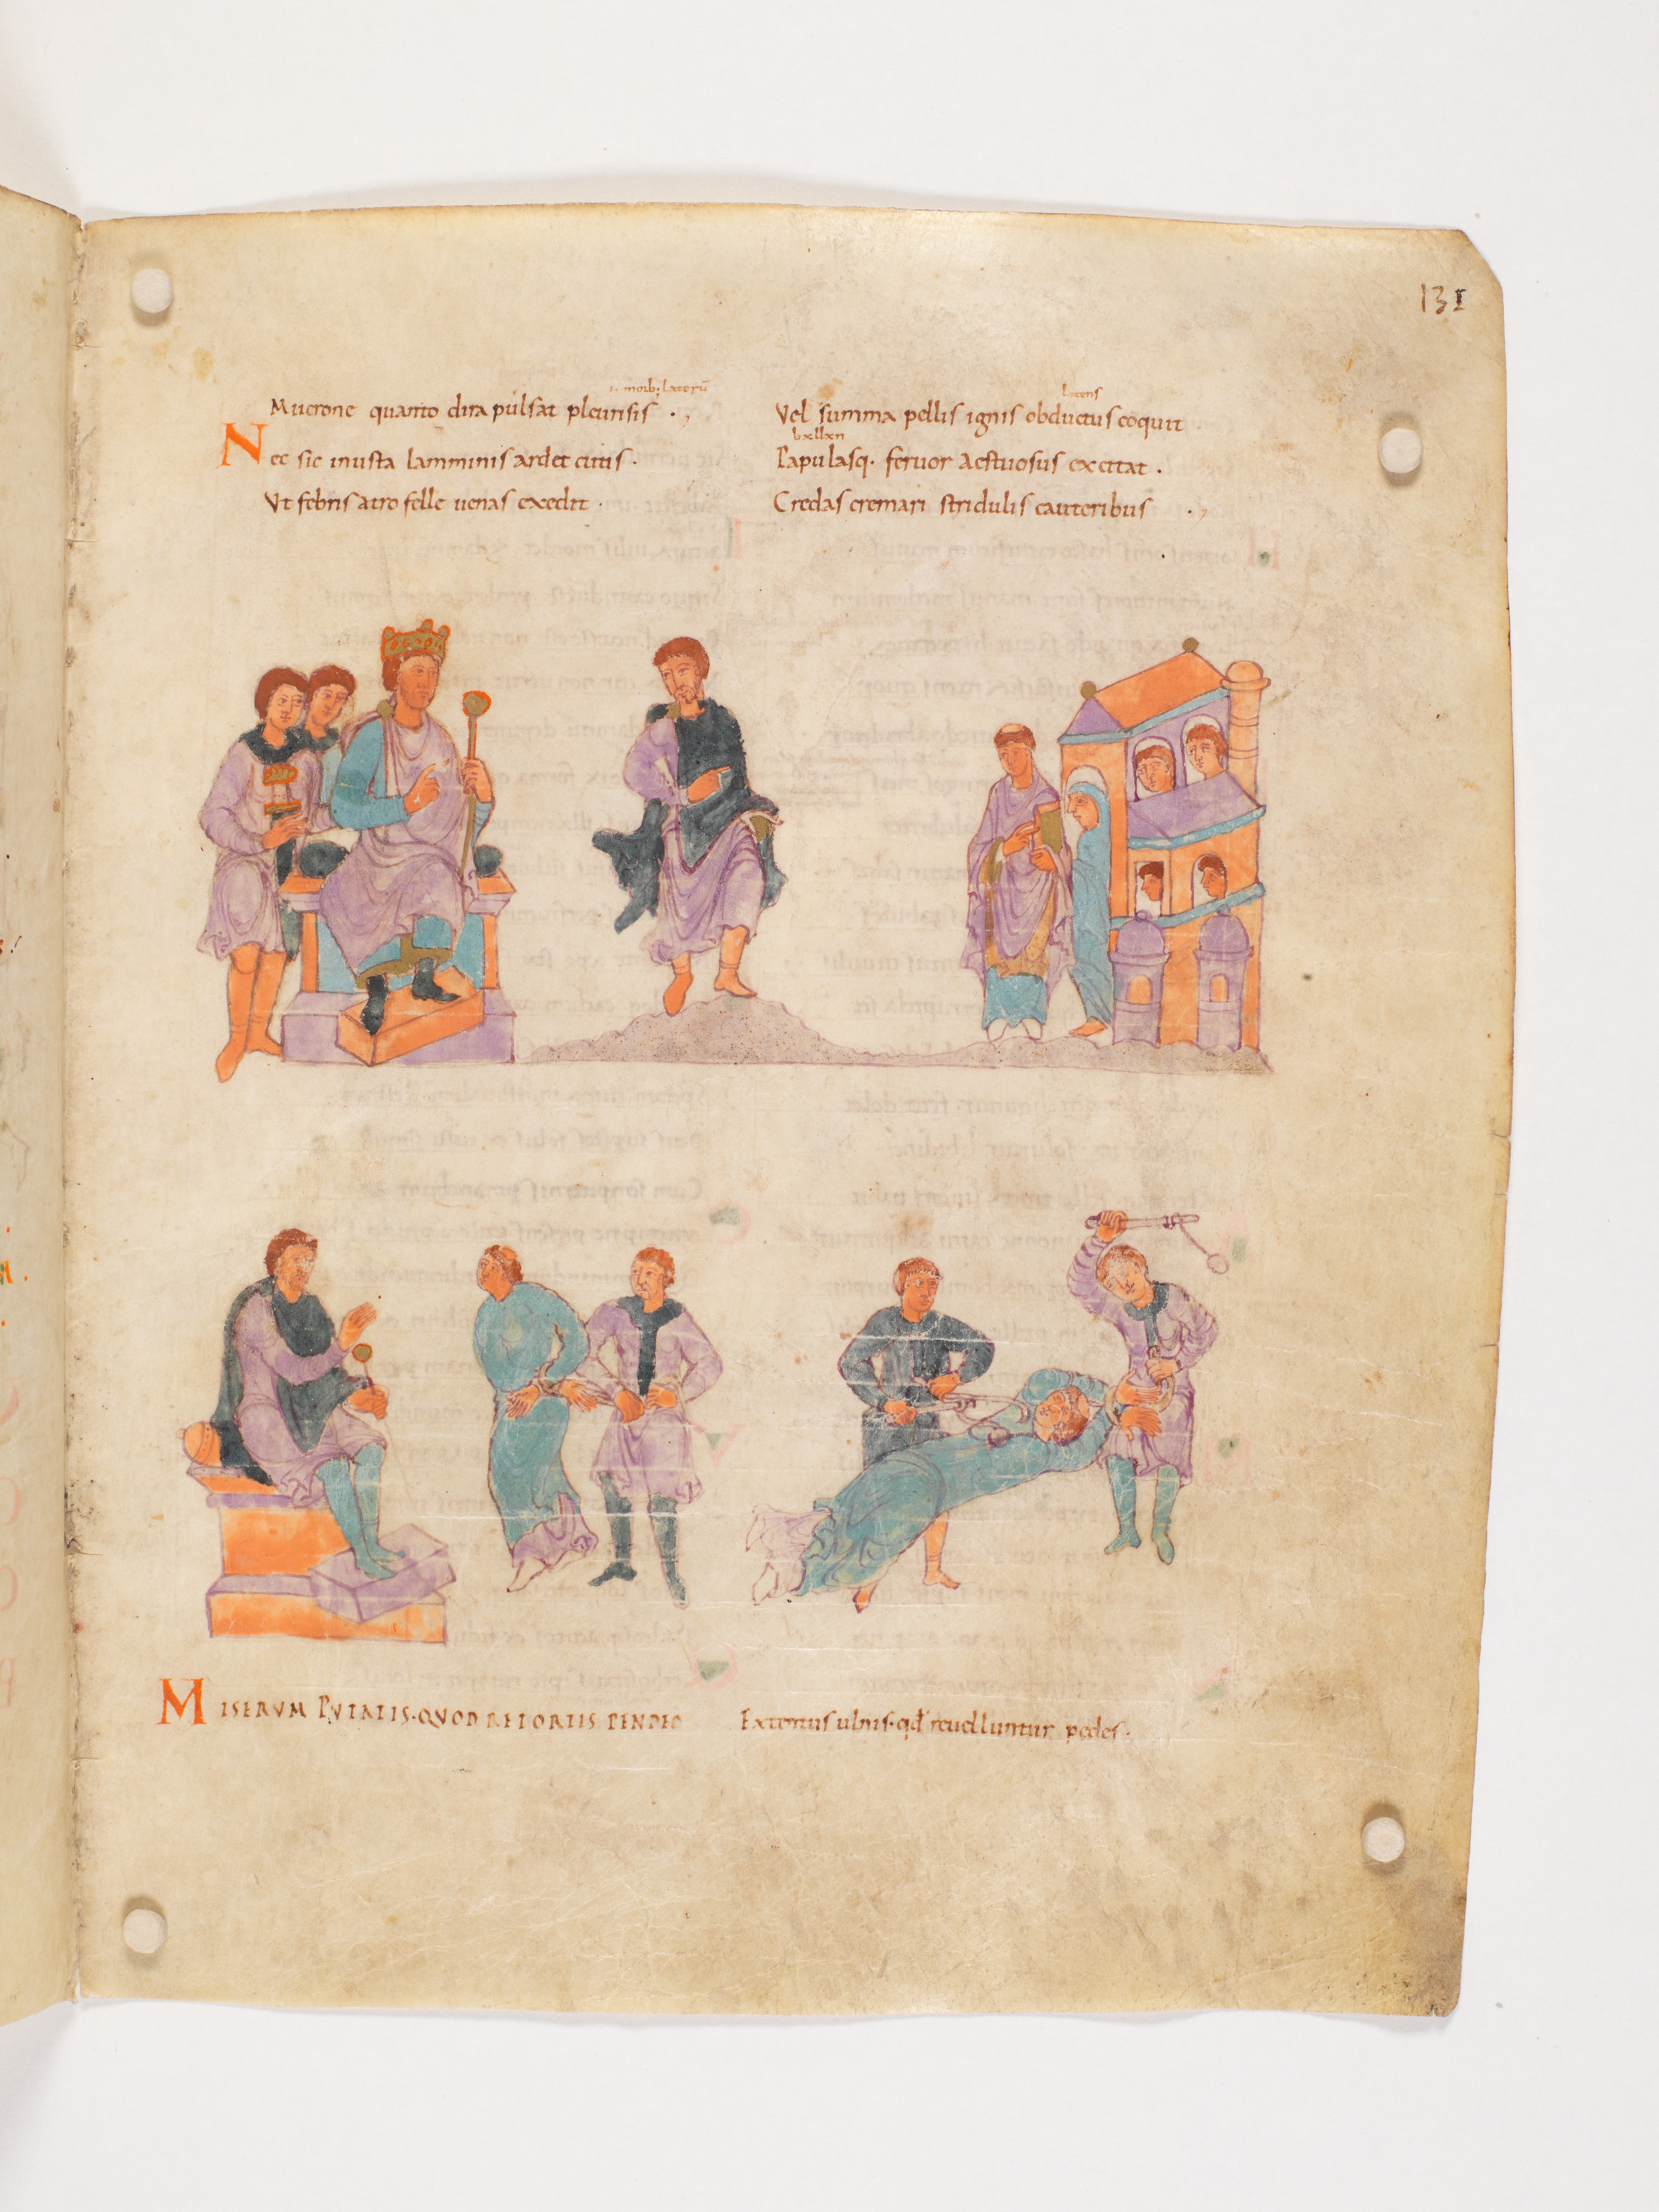 131
.i. morb; laterū
Mucrone quanto dira pulsat pleurisis .,
Nec sic inusta lamminis ardet cutis.
Ut febris atro felle uenas exedit.
latens
Vel summa pellis ignis obductus coquit
Papulasq. feruor aestuosus excitat.
Credas cremari stridulis cauteribus .,
MISERVM PVTATIS. QVOD RETORTIS PENDEO
Extentus ulnis. qđ reuelluntur pedes.